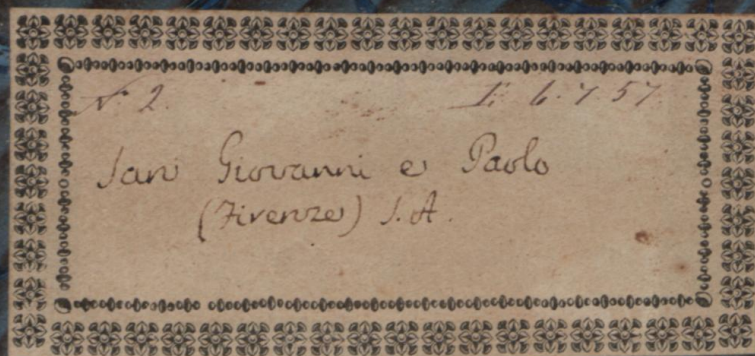 N. 2. E. 6. 7 57
San Giovanni e Paolo
(Firenze) S. A.